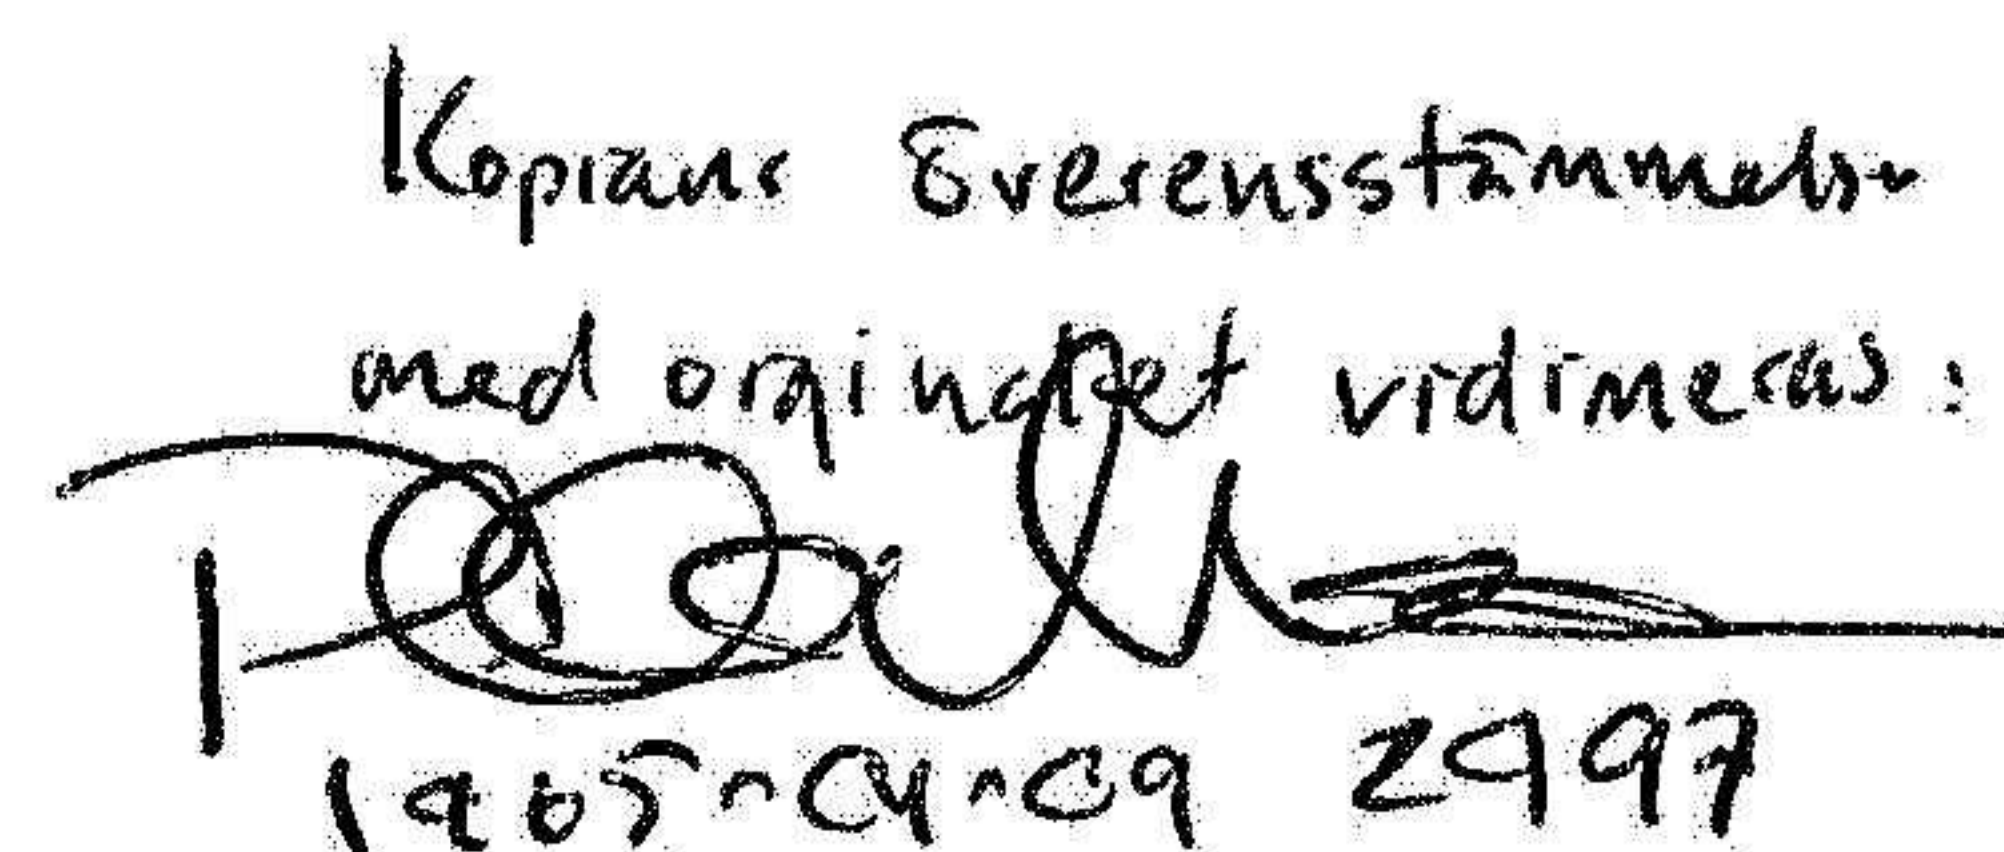 Kopians överensstämmelse
med orginalet vidimeras:
1965-04-09 2997